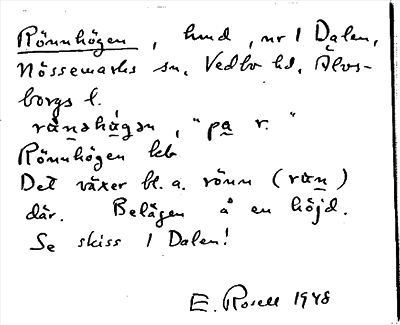 Rönnhögen, hmd, nr 1 Dalen,
Nössemarks sn, Vedbo hd, Älvs-
borgs l.
rånəhågən, "pa r."
Rönnhögen kb
Det växer bl. a. rönn (rån)
där. Belägen å en höjd.
Se skiss 1 Dalen!
E. Rosell 1948